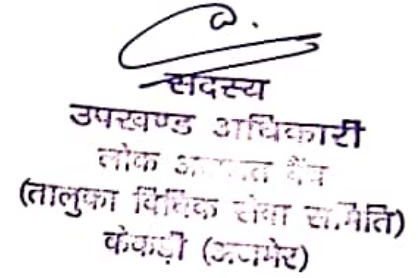 सदस्य
उपखण्ड अधिकारी
लोक अदालत बैंच
(तालुका विधिक सेवा समिति)
केकड़ी (अजमेर)